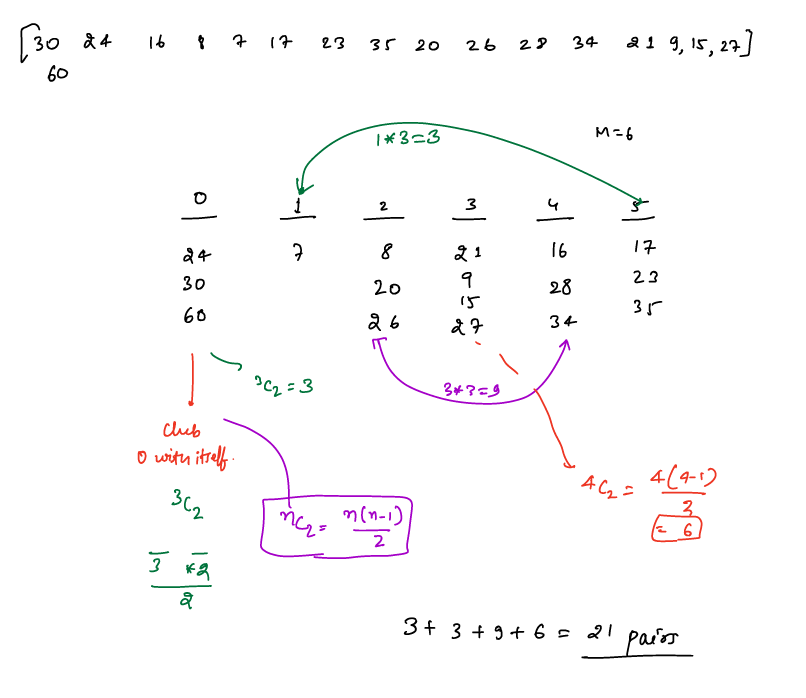 [30 24 16 8 7 17 23 35 20 26 28 34 21 9, 15, 27]
60
1*3=3
M=6
0 1 2 3 4 5
24 7 8 21 16 17
30 20 9 28 23
60 26 15 34 35
27
3C2 = 3
3*3=9
Club
0 with itself.
3C2
3 *2
2
nC2 = n(n-1)
2
4C2 = 4(4-1)
3
= 6
3 + 3 + 9 + 6 = 21 pairs